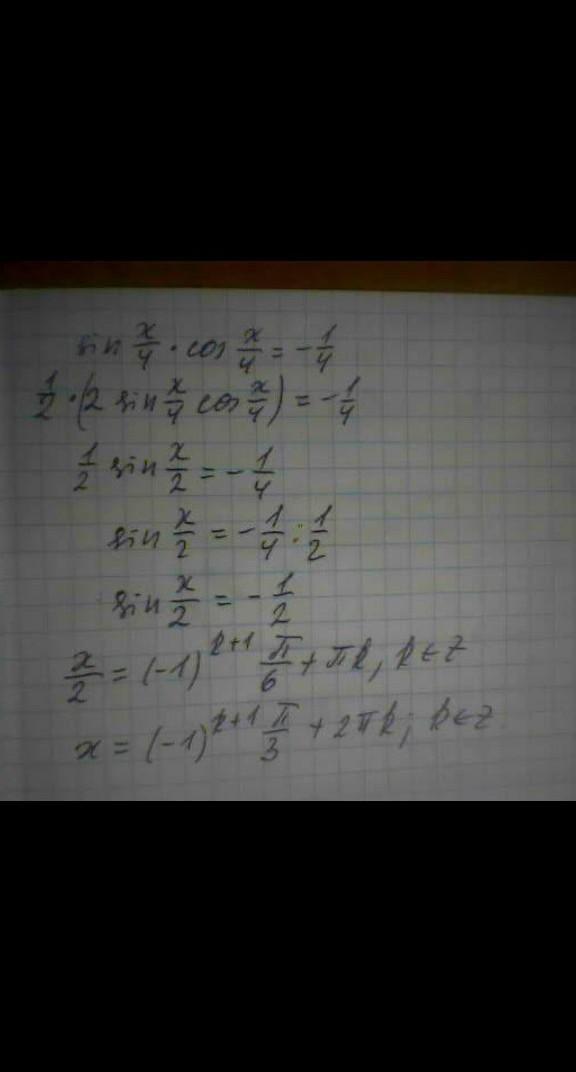 sin x/4 · cos x/4 = -1/4
1/2 · (2 sin x/4 cos x/4) = -1/4
1/2 sin x/2 = -1/4
sin x/2 = -1/4 : 1/2
sin x/2 = -1/2
x/2 = (-1)^(k+1) π/6 + πk, k ∈ Z
x = (-1)^(k+1) π/3 + 2πk; k ∈ Z